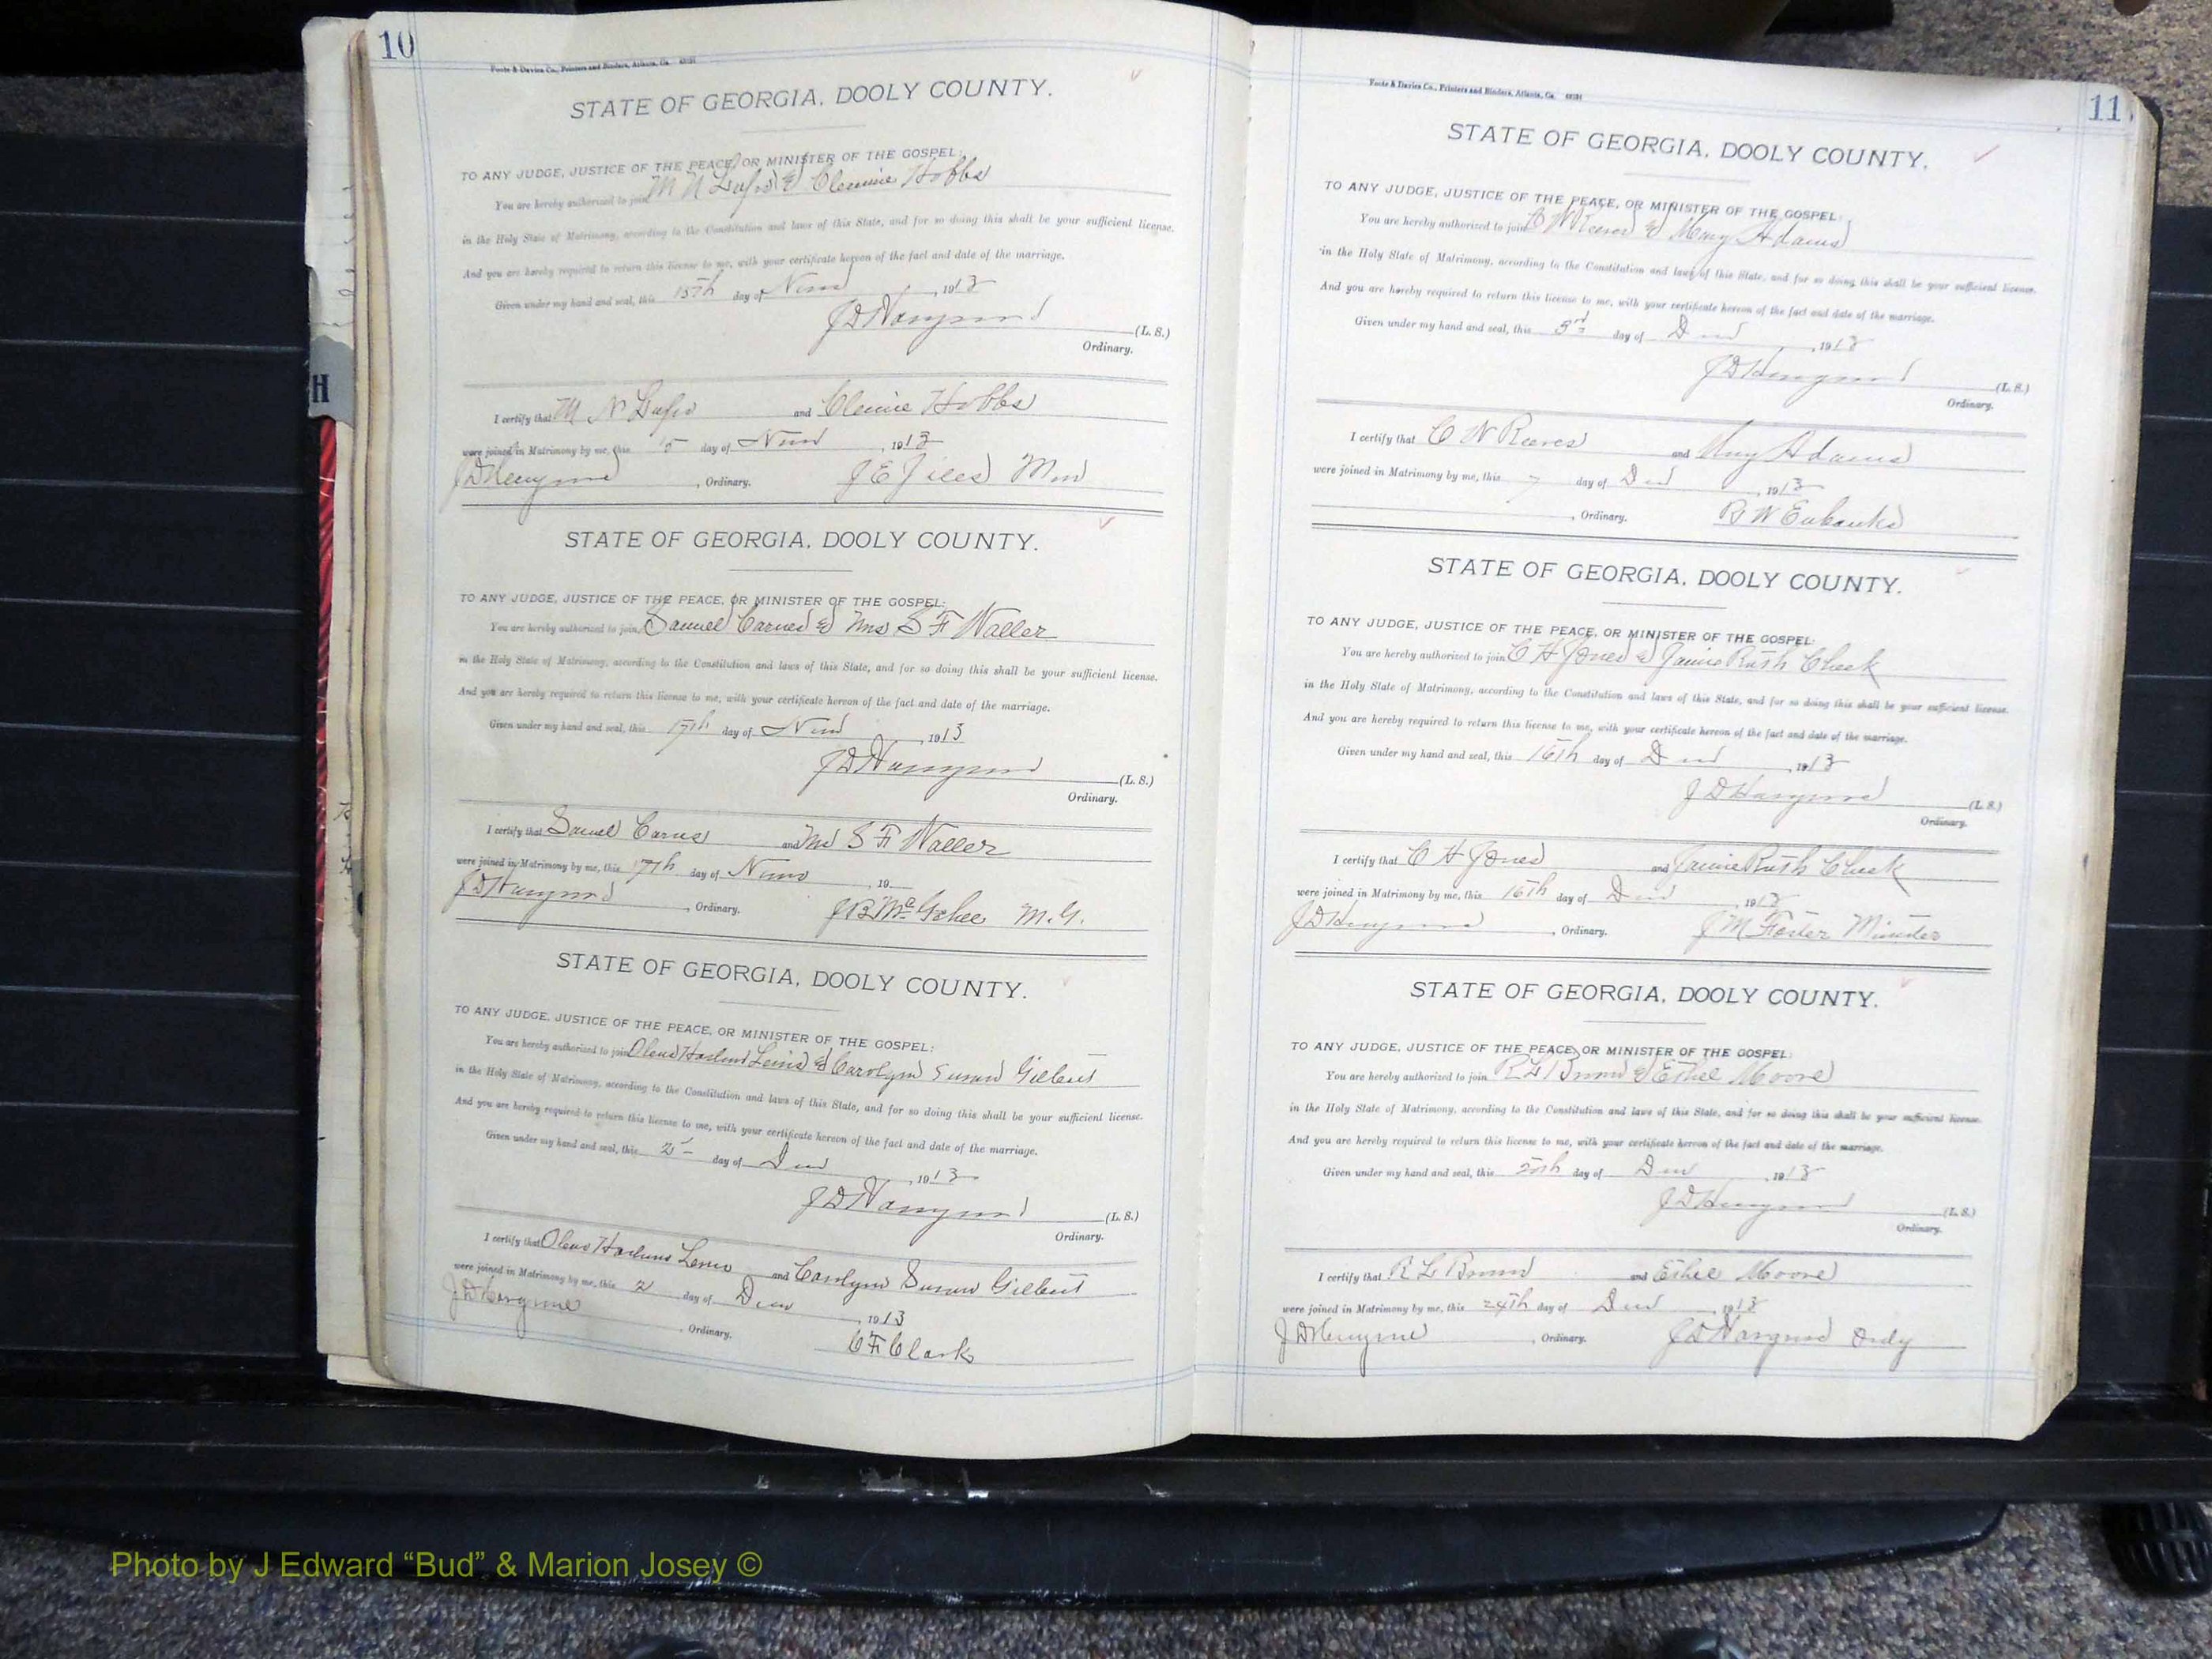 10
Foote & Davies Co., Printers and Binders, Atlanta, Ga.
STATE OF GEORGIA, DOOLY COUNTY.
TO ANY JUDGE, JUSTICE OF THE PEACE, OR MINISTER OF THE GOSPEL:
You are hereby authorized to join M N & Clemmie Hobbs
in the Holy State of Matrimony, according to the Constitution and laws of this State, and for so doing this shall be your sufficient license.
And you are hereby required to return this license to me, with your certificate hereon of the fact and date of the marriage.
Given under my hand and seal, this 15th day of , 1913
J D (L. S.)
Ordinary.
I certify that M N and Hobbs
were joined in Matrimony by me, this day of , 1913
J D , Ordinary. J E Jiles
STATE OF GEORGIA, DOOLY COUNTY.
TO ANY JUDGE, JUSTICE OF THE PEACE, OR MINISTER OF THE GOSPEL:
You are hereby authorized to join Samuel Carnes & Mrs S F Waller
in the Holy State of Matrimony, according to the Constitution and laws of this State, and for so doing this shall be your sufficient license.
And you are hereby required to return this license to me, with your certificate hereon of the fact and date of the marriage.
Given under my hand and seal, this 17th day of , 1913
J D (L. S.)
Ordinary.
I certify that Samuel and Mrs S F Waller
were joined in Matrimony by me, this 17th day of , 19
J D , Ordinary. J B McGehee M.G.
STATE OF GEORGIA, DOOLY COUNTY.
TO ANY JUDGE, JUSTICE OF THE PEACE, OR MINISTER OF THE GOSPEL:
You are hereby authorized to join Lewis & Carolyn Susan Gilbert
in the Holy State of Matrimony, according to the Constitution and laws of this State, and for so doing this shall be your sufficient license.
And you are hereby required to return this license to me, with your certificate hereon of the fact and date of the marriage.
Given under my hand and seal, this 2 day of , 1913
J D (L. S.)
Ordinary.
I certify that and Carolyn Susan Gilbert
were joined in Matrimony by me, this 2 day of , 1913
J D , Ordinary.
C F Clark
11
Foote & Davies Co., Printers and Binders, Atlanta, Ga.
STATE OF GEORGIA, DOOLY COUNTY.
TO ANY JUDGE, JUSTICE OF THE PEACE, OR MINISTER OF THE GOSPEL:
You are hereby authorized to join C W Reeves & Mary Adams
in the Holy State of Matrimony, according to the Constitution and laws of this State, and for so doing this shall be your sufficient license.
And you are hereby required to return this license to me, with your certificate hereon of the fact and date of the marriage.
Given under my hand and seal, this day of , 1913
J D (L. S.)
Ordinary.
I certify that C W Reeves and Adams
were joined in Matrimony by me, this 7 day of , 1913
, Ordinary. R W Eubanks
STATE OF GEORGIA, DOOLY COUNTY.
TO ANY JUDGE, JUSTICE OF THE PEACE, OR MINISTER OF THE GOSPEL:
You are hereby authorized to join C H Jones & Janie Ruth Cheek
in the Holy State of Matrimony, according to the Constitution and laws of this State, and for so doing this shall be your sufficient license.
And you are hereby required to return this license to me, with your certificate hereon of the fact and date of the marriage.
Given under my hand and seal, this 16th day of , 1913
J D (L. S.)
Ordinary.
I certify that C H Jones and Janie Ruth Cheek
were joined in Matrimony by me, this 16th day of , 1913
J D , Ordinary. J M Foster Minister
STATE OF GEORGIA, DOOLY COUNTY.
TO ANY JUDGE, JUSTICE OF THE PEACE, OR MINISTER OF THE GOSPEL:
You are hereby authorized to join R L Brown & Ethel Moore
in the Holy State of Matrimony, according to the Constitution and laws of this State, and for so doing this shall be your sufficient license.
And you are hereby required to return this license to me, with your certificate hereon of the fact and date of the marriage.
Given under my hand and seal, this day of , 1913
J D (L. S.)
Ordinary.
I certify that R L Brown and Ethel Moore
were joined in Matrimony by me, this 24th day of , 1913
J D , Ordinary. J D Ordy
H
Photo by J Edward “Bud” & Marion Josey ©